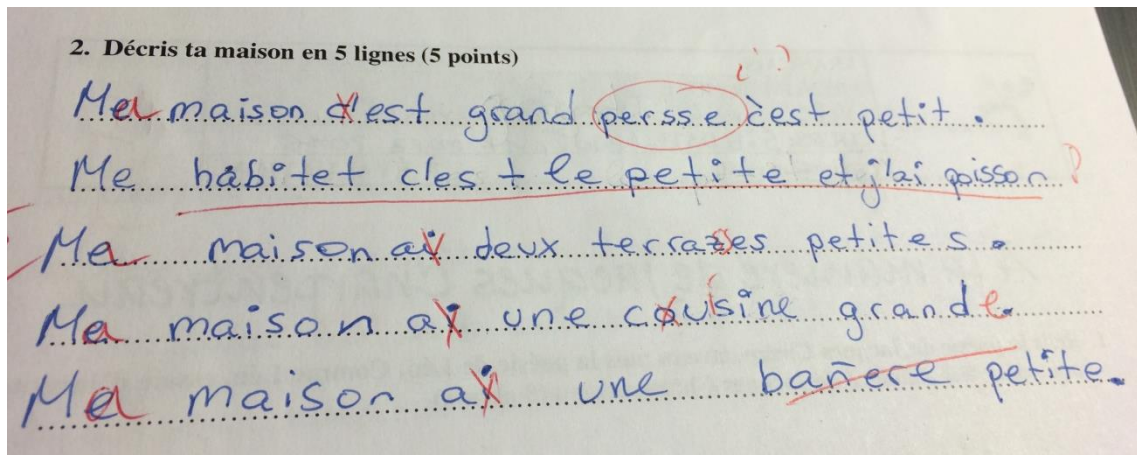 2. Décris ta maison en 5 lignes (5 points)
¿?
Ma maison c'est grand persse c'est petit.
Me habitet c'est le petite et j'ai poisson ?
Ma maison ai deux terrazes petites.
Ma maison ai une cousine grande.
Ma maison ai une bañere petite.